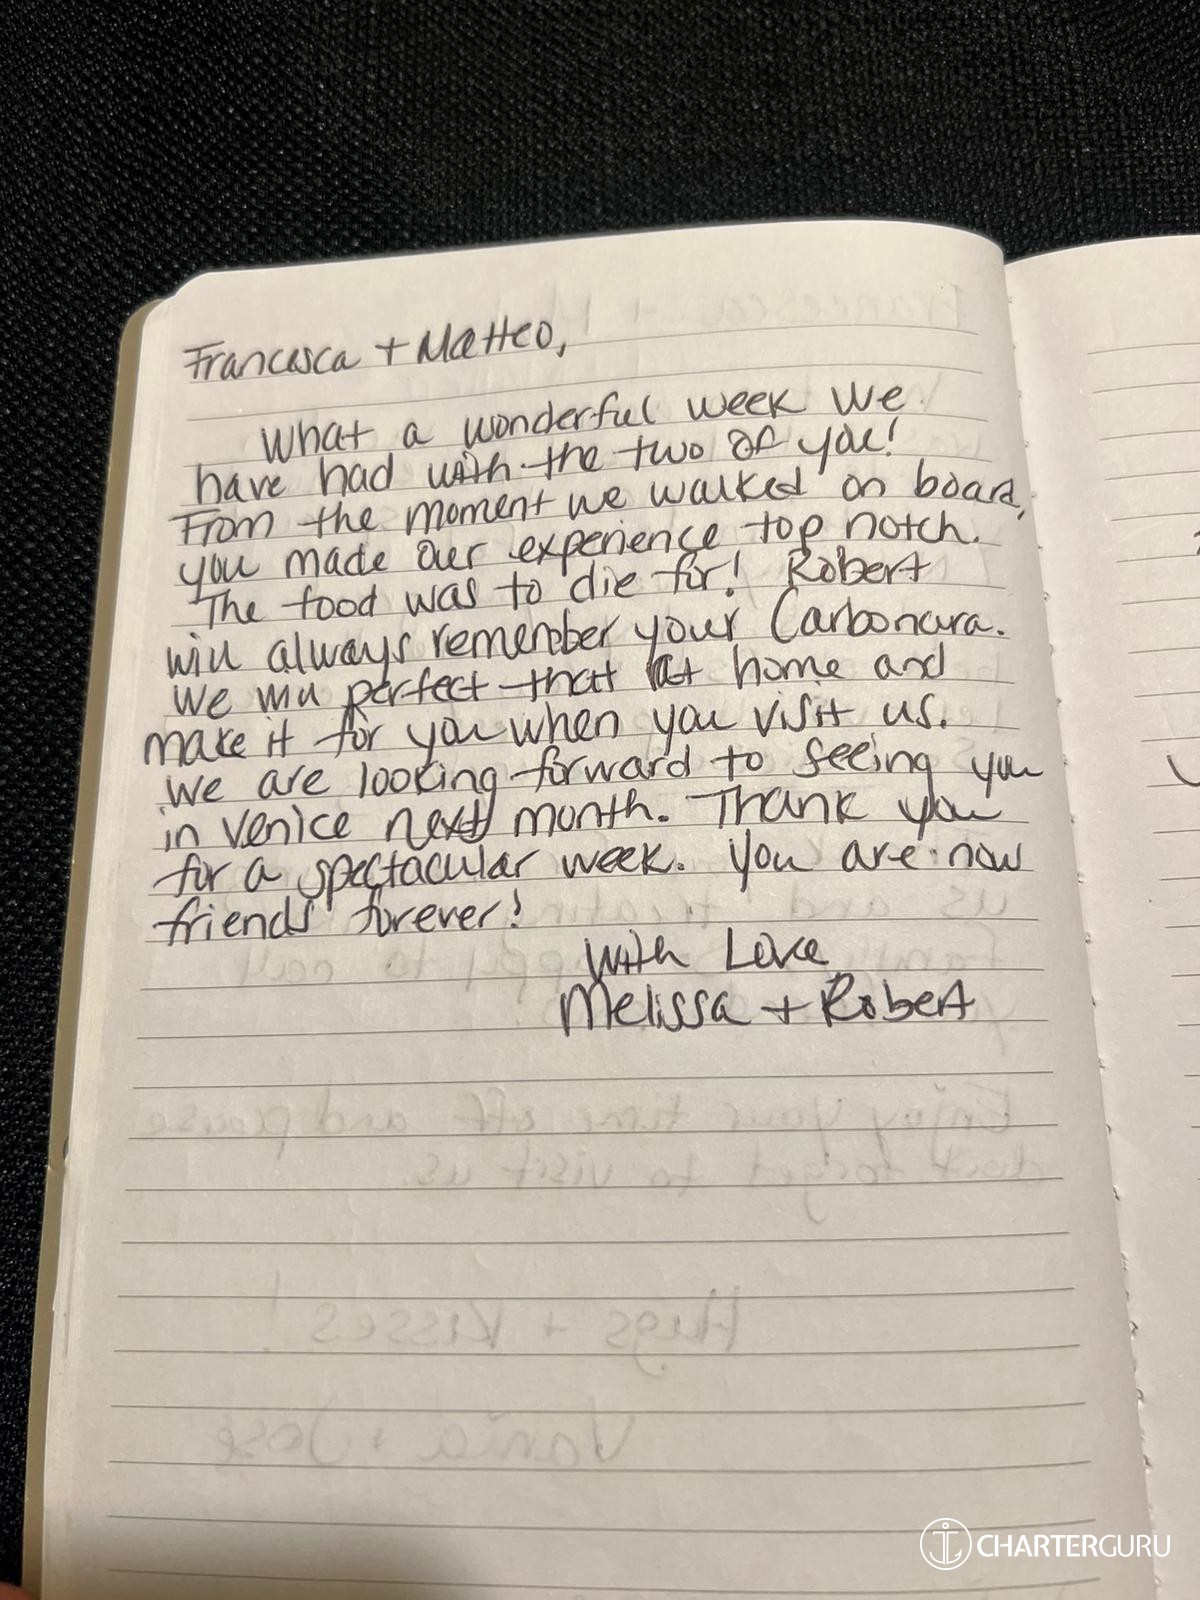 Francesca + Matteo,
What a wonderful week we
have had with the two of you!
From the moment we walked on board,
you made our experience top notch.
The food was to die for! Robert
will always remember your Carbonara.
We will perfect that at home and
make it for you when you visit us.
We are looking forward to seeing you
in Venice next month. Thank you
for a spectacular week. You are now
friends forever!
With Love
Melissa + Robert
Enjoy your time off and please
don't forget to visit us.
Hugs + Kisses!
Vania + Jose
CHARTERGURU